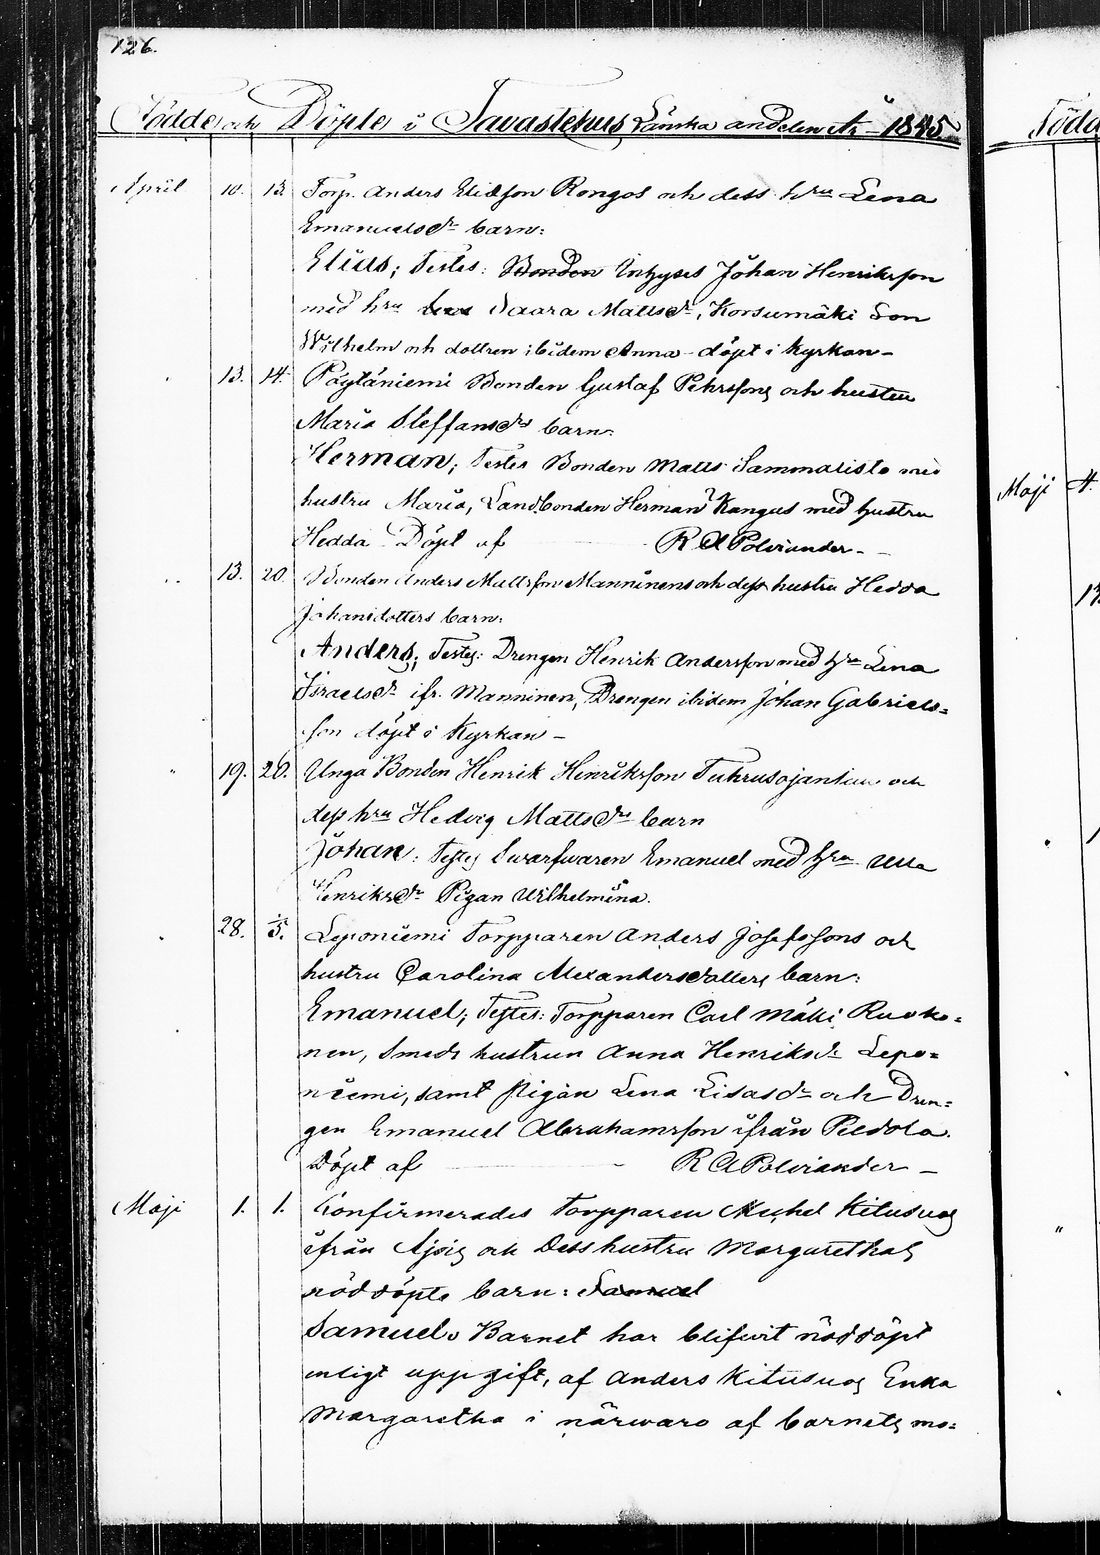 126.
Födde och Döpte i Tavastehus Länska andelen År 1845
April 10. 13. Torp. Anders Eliæson Rongos och dess hru Lena
Emanuelsdr barn:
Elias; Testes: Bonden Inhyses Johan Henriksson
med hru Saara Mattsdr, Korsumäki Son
Wilhelm och dottren ibidem Anna - döpt i Kyrkan -
13. 14. Pöytäniemi Bonden Gustaf Pehrssons och hustru
Maria Steffansdrs barn:
Herman; Testes Bonden Matts Sammalisto med
hustru Maria, Landbonden Herman Kangus med hustru
Hedda - Döpt af R A Polviander -
13. 20. Bonden Anders Mattsson Manninens och dess hustru Hedda
Johansdotters barn:
Anders; Testes: Drengen Henrik Andersson med hru Lena
Israelsdr ifr. Manninen, Drengen ibidem Johan Gabriels=
son döpt i Kyrkan -
19. 20. Unga Bonden Henrik Henriksson Tuhrusojantaus och
dess hru Hedvig Mattsdrs barn
Johan: Testes Swarfwaren Emanuel med hru Ulla
Henriksdr Pigan Wilhelmina.
28. 1/5. Leponiemi Torpparen Anders Josefssons och
hustru Carolina Alexandersdotters barn:
Emanuel; Testes: Torpparen Carl Mäki Ruoko=
nen, Smeds hustrun Anna Henriksdr Lepo=
niemi, samt pigan Lena Lisasdr och Dren=
gen Emanuel Abrahamsson ifrån Peldola.
Döpt af R A Polviander -
Maji 1. 1. Confirmerades Torpparen Michel Kitusuos
ifrån Ajois och Dess hustru Margarethas
nöddöpta barn: Samuel
Samuel. Barnet har blifwit nöddöpt
enligt uppgift, af Anders Kitusuos Enka
Margaretha i närwaro af barnets mo=
Född
Maji 4.